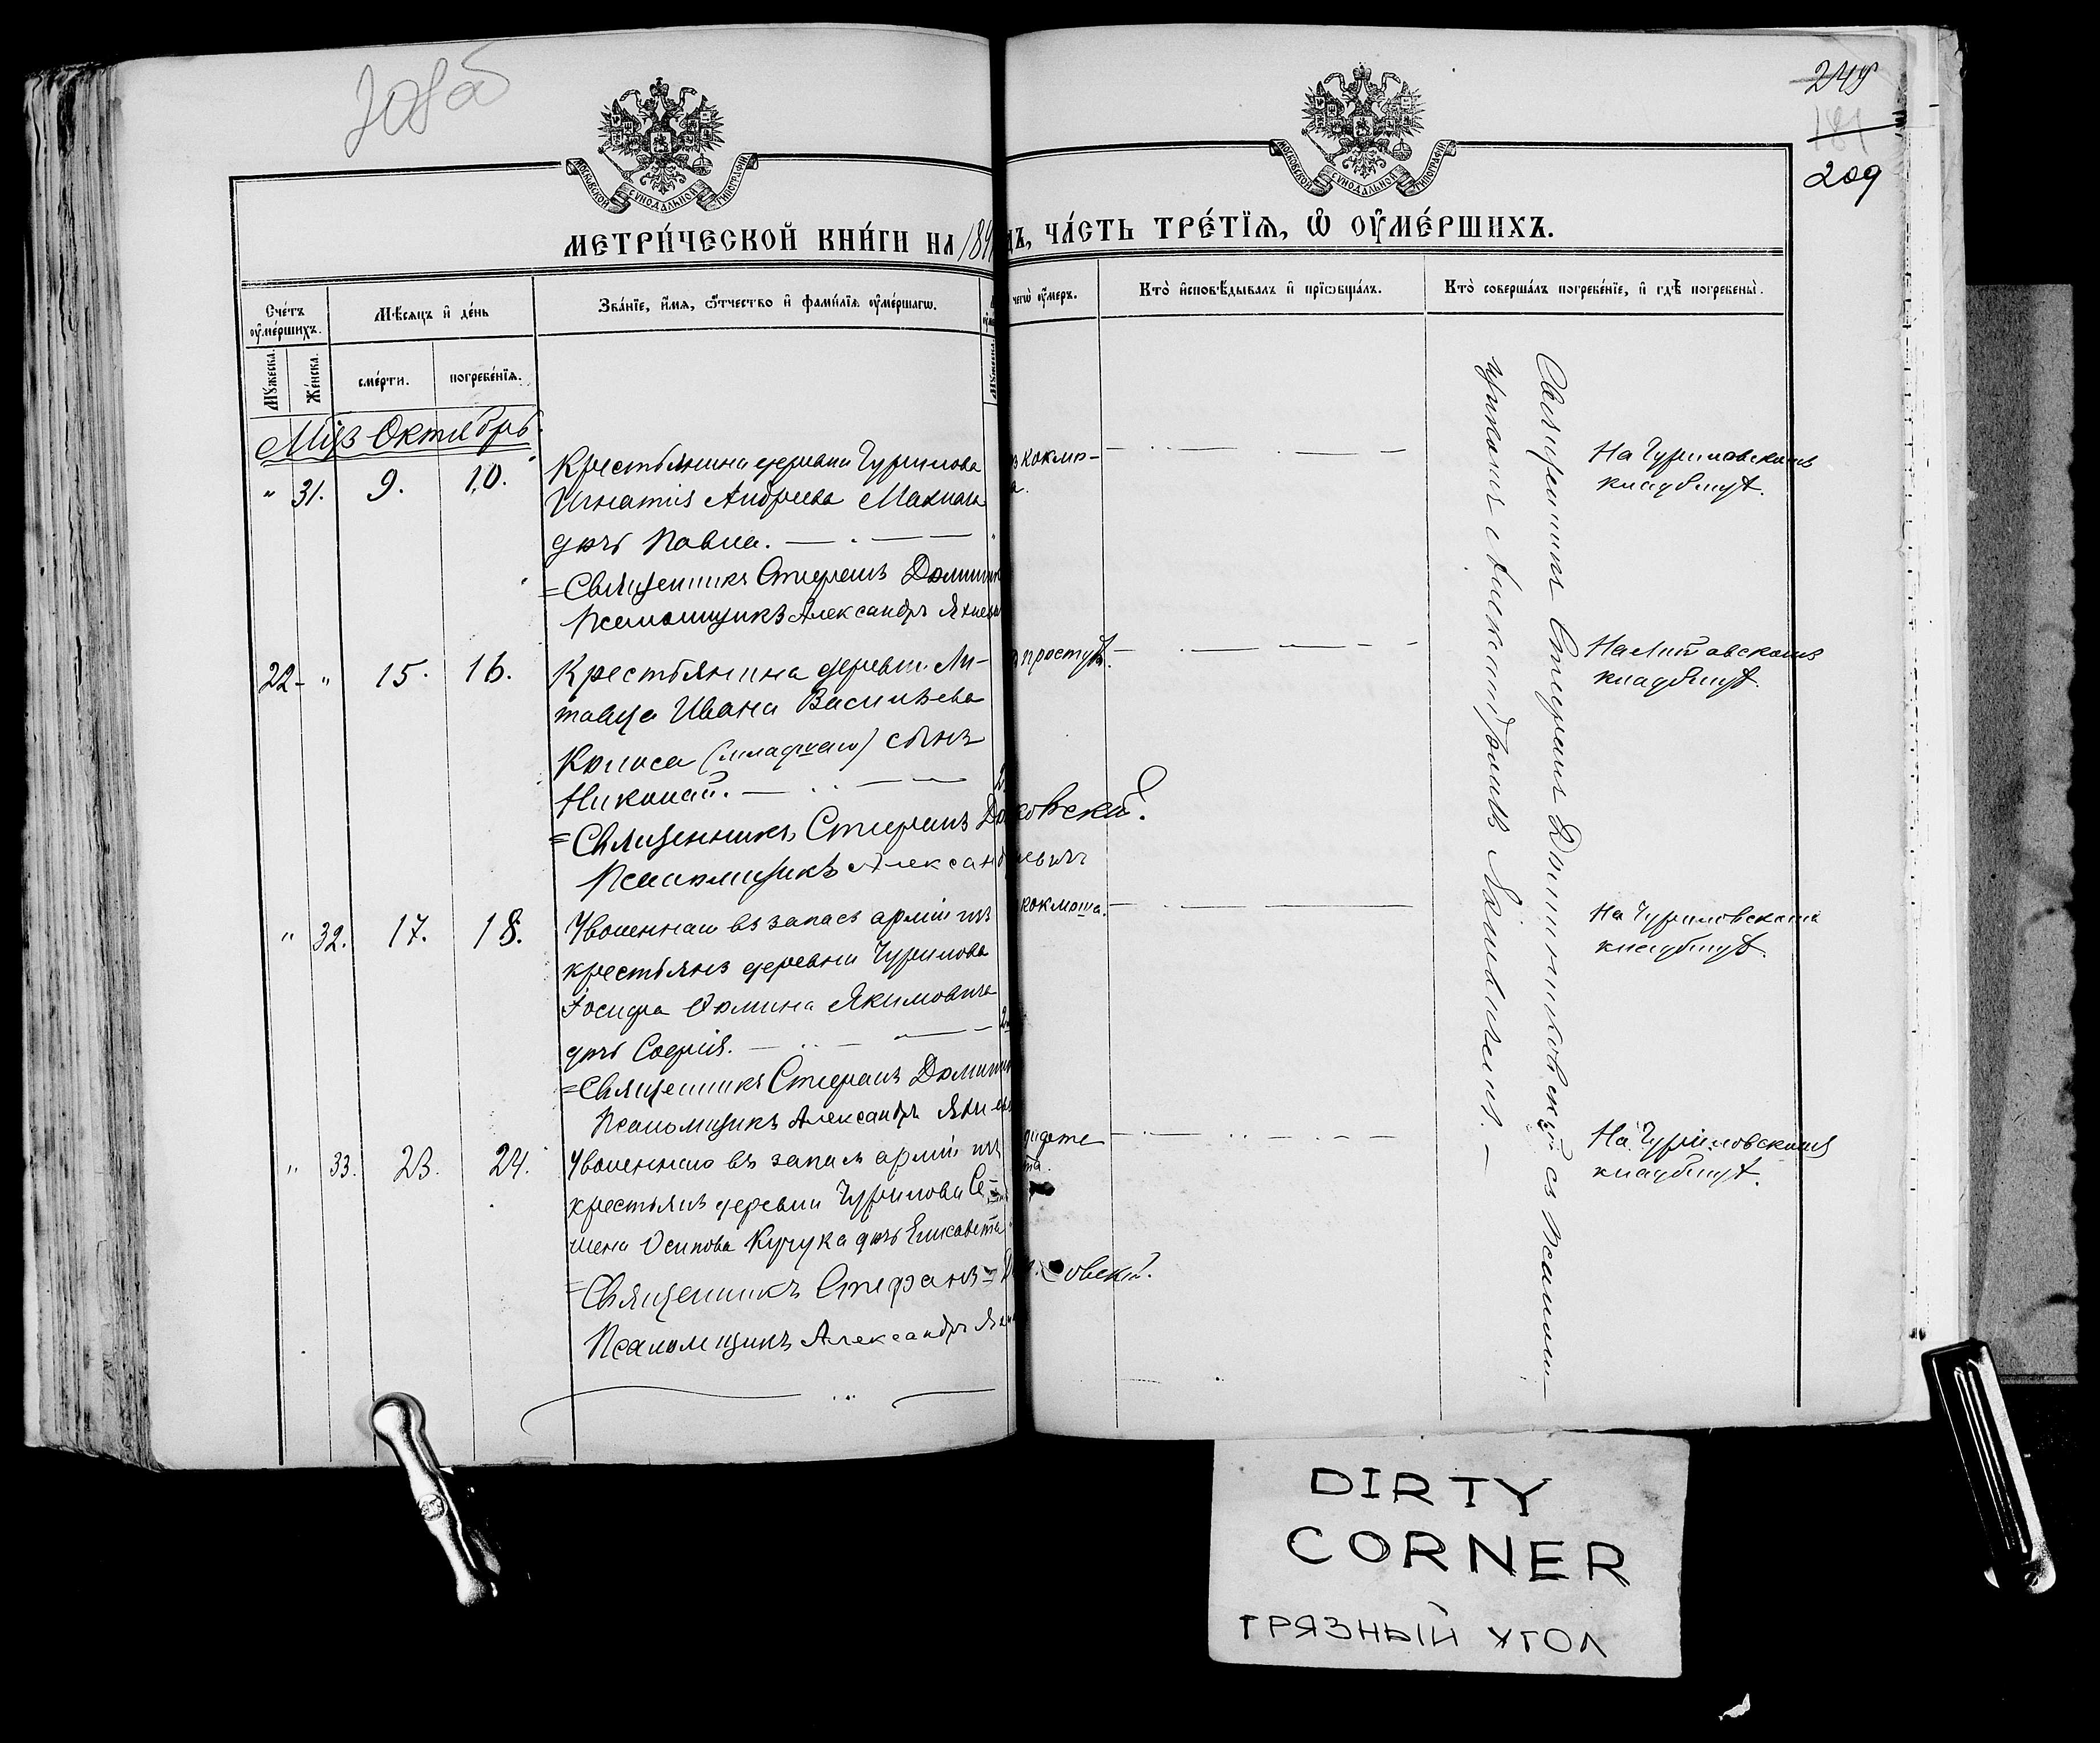 208 об
249
181
209
МОСКОВСКОЙ СУНОДАЛЬНОЙ ТИПОГРАФІИ
МОСКОВСКОЙ СУНОДАЛЬНОЙ ТИПОГРАФІИ
МЕТРИ́ЧЕСКОЙ КНИ́ГИ НА 189
дъ, ЧА́СТЬ ТРЕ́ТІѦ, Ѽ ОУ҆МЕ́РШИХЪ.
Сче́тъ оу҆ме́ршихъ.
Мѣ́сяцъ и҆ де́нь
Зва́нїе, и҆́мѧ, ѻ҆́тчество и҆ фамѝлїѧ оу҆ме́ршагѡ.
чегѡ̀ оу҆́меръ.
Кто̀ и҆сповѣ́дывалъ и҆ прїѡбща́лъ.
Кто̀ соверша́лъ погребе́нїе, и҆ гдѣ̀ погребены̀.
Мꙋ́жеска.
Же́нска.
сме́рти.
погребе́нїѧ.
Мцъ Октябрь.
" 31. 9. 10.
Крестьянина деревни Чурилова
Игнатія Андреева
дочь Павла.
=Священникъ Стефанъ
Псаломщикъ Александръ
коклю-
а.
На Чуриловскомъ
кладбищѣ.
22 - " 15. 16.
Крестьянина деревни Ли-
товца Ивана Васильева
(младшаго) сынъ
Николай.
=Священникъ Стефанъ
ковскій.
Псаломщикъ
простуд.
На Литовскомъ
кладбищѣ.
" 32. 17. 18.
Уволеннаго въ запасъ арміи изъ
крестьянъ деревни Чурилова
Іосифа Ѳомина Якимовича
дочь Софія.
=Священникъ Стефанъ
Псаломщикъ Александръ
коклюша.
На Чуриловскомъ
кладбищѣ.
" 33. 23. 24.
Уволеннаго въ запасъ арміи изъ
крестьянъ деревни Чурилова Се-
мена Осипова Кучука дочь Елисавета
=Священникъ Стефанъ
овскій.
Псаломщикъ Александръ
На Чуриловскомъ
кладбищѣ.
Священникъ Стефанъ Доминиковскій съ Псалом-
щикомъ Александромъ
DIRTY
CORNER
ГРЯЗНЫЙ УГОЛ